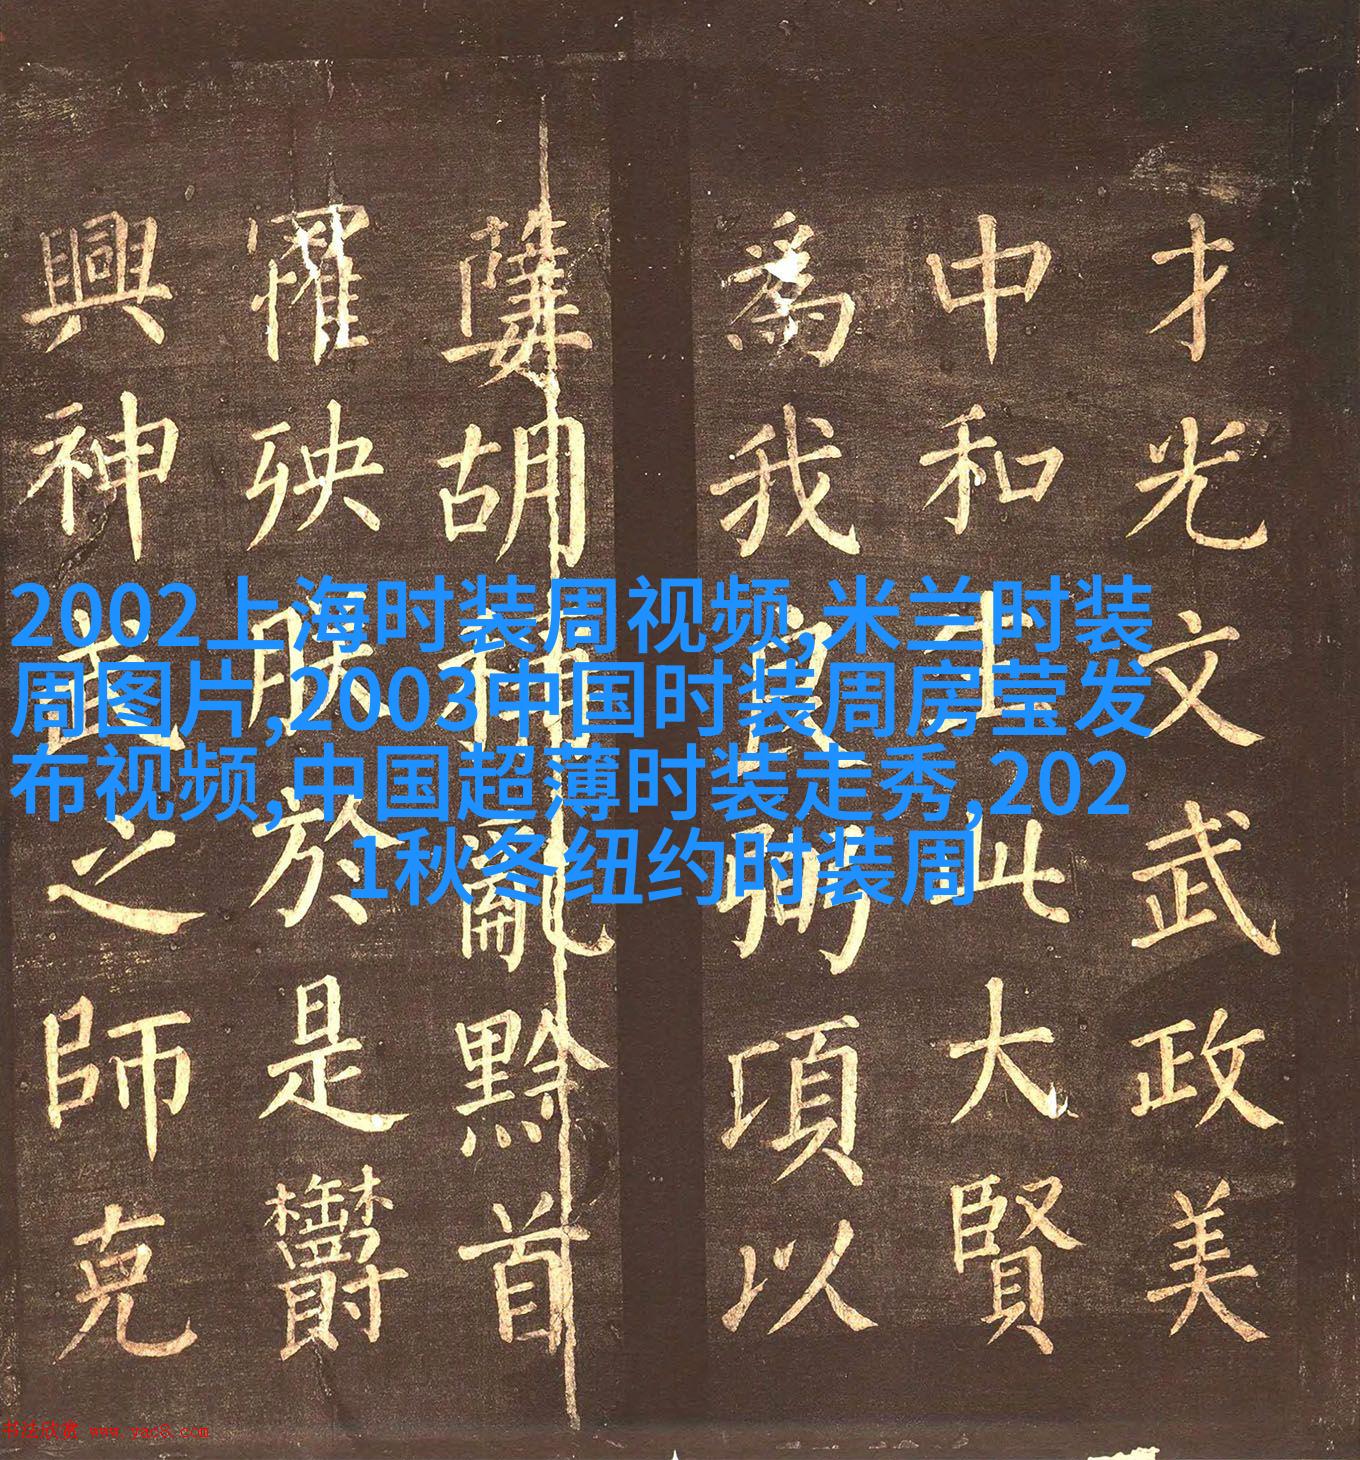 才光文武政美
中和生此大賢
爲我良弼項以
胡稱亂黔首
罹殃朕於是鬱
興神之師克
2002上海时装周视频,米兰时装
周图片,2003中国时装周房莹发
布视频,中国超薄时装走秀,202
1秋冬纽约时装周
书法欣赏 www.yac8.com